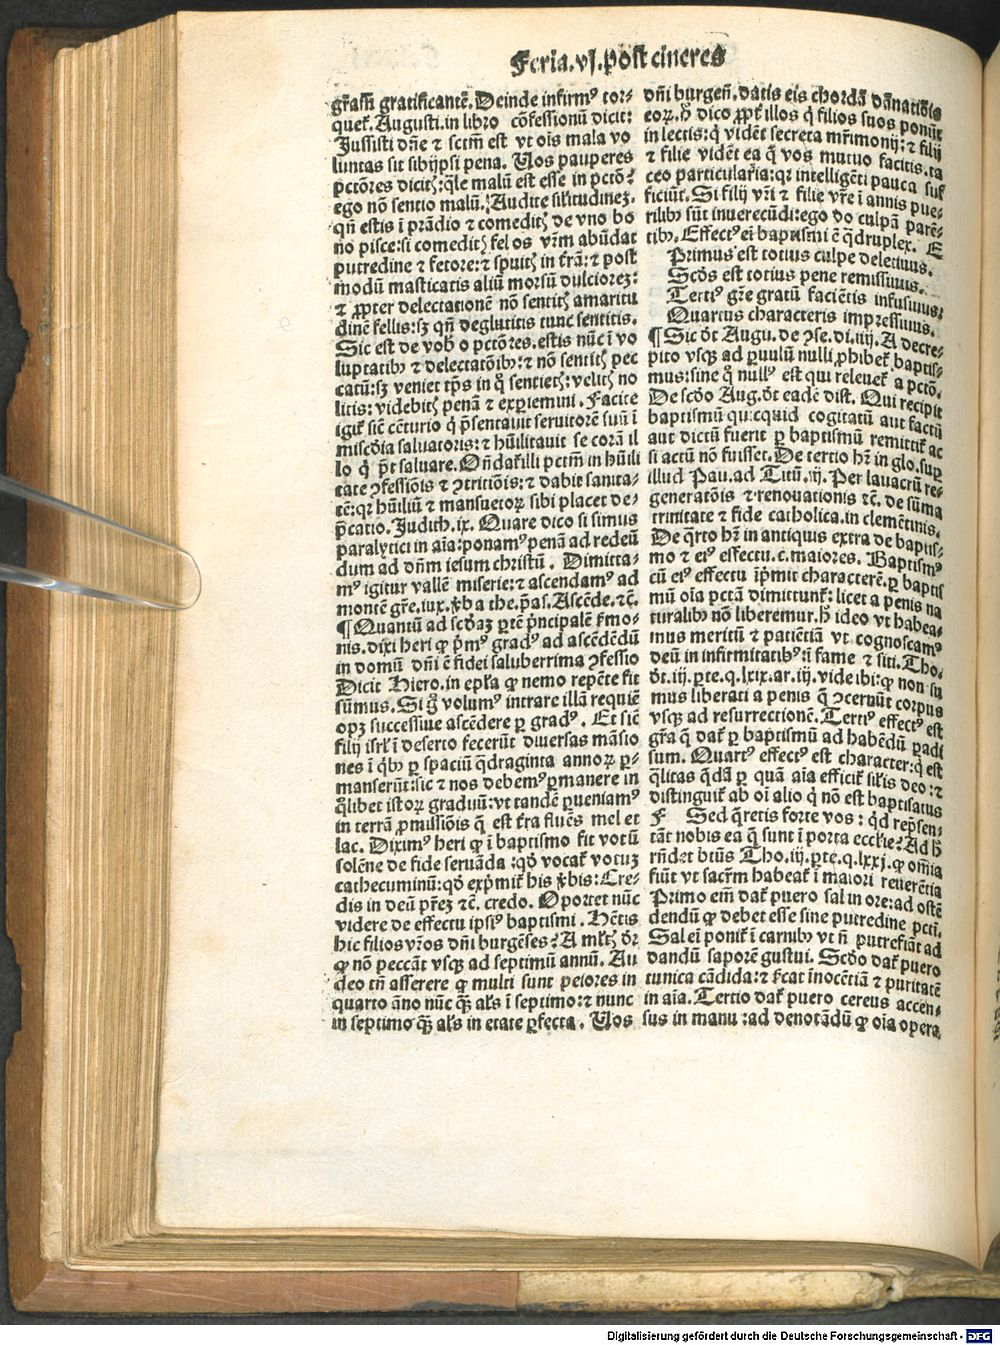 Feria.vj.post cineres
gr̄assi gratificantē. Deinde infirmꝰ tor-
quet̄. Augusti.in libro cōfessionū dicit:
Jussisti dn̄e ⁊ sctm̄ est vt oīs mala vo
luntas sit sibijpsi pena. Uos pauperes
pctōres dicitꝭ: qͣle malū est esse in pctō?
ego nō sentio malū. Audite sil̄itudinez.
qn̄ estis ī prādio ⁊ comeditꝭ de vno bo
no pisce: si comeditꝭ fel os vr̄m abūdat
putredine ⁊ fetore: ⁊ spuitꝭ in t̄rā: ⁊ post
modū masticatis aliū morsū dulciorez:
⁊ ꝓpter delectationē nō sentitꝭ amaritu
dinē fellis: sꝫ qn̄ deglutitis tunc sentitis.
Sic est de vob̄ o pctōres. estis nūc ī vo
luptatibꝫ ⁊ delectatōibꝫ: ⁊ nō sentitꝭ pec
catū: sꝫ veniet tp̄s in qͦ sentietꝭ: velitꝭ no
litis: videbitꝭ penā ⁊ exꝑiemini. Facite
igit̄ sic̄ cēturio qͥ p̄sentauit seruitorē suū ī
miscd̄ia saluatoris: ⁊ hūilitauit se corā il
lo qͥ p̄t saluare. On̄dat̄ illi pctm̄ in hūili
tate ꝯfessiōis ⁊ ꝯtritiōis: ⁊ dabit sanita-
tē: qꝛ hūiliū ⁊ mansuetoꝝ sibi placet de-
p̄catio. Judith.ix. Quare dico si simus
paralytici in aīa: ponamꝰ penā ad redeū
dum ad dn̄m iesum christū. Dimitta-
mꝰ igitur vallē miserie: ⁊ ascendamꝰ ad
montē gr̄e, iux. ꝟba the. p̄as. Ascēde. ⁊c̄.
¶ Quantū ad scd̄aꝫ ꝑtē p̄ncipalē s̄mo-
nis. dixi heri ꝙ p̄mꝰ gradꝰ ad ascēdēdū
in domū dn̄i ē fidei saluberrima ꝯfessio
Dicit Hiero. in epl̄a ꝙ nemo repēte fit
sūmus. Si gͦ volumꝰ intrare illā requiē
opꝫ successiue ascēdere ꝑ gradꝰ. Et sic̄
filij isrl̄ ī deserto fecerūt diuersas māsio
nes ī qͥbꝫ ꝑ spaciū qͣdraginta annoꝝ ꝑ-
manserūt: sic ⁊ nos debemꝰ ꝑmanere in
qͦlibet istoꝝ graduū: vt tandē ꝑueniamꝰ
in terrā ꝓmissiōis q̄ est t̄ra fluēs mel et
lac. Diximꝰ heri ꝙ ī baptismo fit votū
solēne de fide seruāda: qd̄ vocat̄ votuꝫ
cathecuminū: qd̄ exp̄mit̄ his ꝟbis: Cre-
dis in deū pr̄eꝫ ⁊c̄. credo. Oportet nūc
videre de effectu ipsiꝰ baptismi. Hētis
hic filios vr̄os dn̄i burgēses? A ml̄tꝭ dr̄
ꝙ nō peccāt vsqꝫ ad septimū annū. Au
deo tn̄ asserere ꝙ multi sunt peiores in
quarto āno nūc qͣꝫ al̄s ī septimo: ⁊ nunc
in septimo qͣꝫ al̄s in etate ꝑfecta. Uos
dn̄i burgen̄. datis eis chordā dānatiōis
eoꝝ. hͦ dico ꝓpt̄ illos qͥ filios suos ponūt
in lectis: qͥ vidēt secreta mr̄imonij: ⁊ filij
⁊ filie vidēt ea q̄ vos mutuo facitis. ta
ceo particularia: qꝛ intelligēti pauca suf
ficiūt. Si filij vr̄i ⁊ filie vr̄e ī annis pue-
rilibꝫ sūt inuerecūdi: ego do culpā parē-
tibꝫ. Effectꝰ eī baptismi ē qͣdruplex. E
Primus est totius culpe deletiuus.
Scd̄s est totius pene remissiuus.
Tertiꝰ gr̄e gratū faciētis infusiuus.
Quartus characteris impressiuus.
¶ Sic dt̄ Augu. de ꝯse. di. iiij. A decre-
pito vsqꝫ ad ꝑuulū nulli ꝓhibet̄ baptis-
mus: sine qͦ nullꝰ est qui releuet̄ a pctō.
De scd̄o Aug. dt̄ eadē dist. Qui recipit
baptismū quicquid cogitatū aut factū
aut dictū fuerit ꝑ baptismū remittit̄ ac
si actū nō fuisset. De tertio hr̄ in glo. suꝑ
illud Pau. ad Titū. iij. Per lauacrū re-
generatōis ⁊ renouationis ⁊c̄. de sūma
trinitate ⁊ fide catholica. in clemētinis.
De qͣrto hr̄ in antiquis extra de baptis-
mo ⁊ eiꝰ effectu. c. maiores. Baptismꝰ
cū eiꝰ effectu īpͥmit characterē. ꝑ baptis
mū oīa pctā dimittunt̄: licet a penis na
turalibꝫ nō liberemur. hͦ ideo vt habea-
mus meritū ⁊ patiētiā vt cognoscamꝰ
deū in infirmitatibꝫ: ī fame ⁊ siti. Tho.
dt̄. iij. ꝑte. q. lxix. ar. iij. vide ibi: ꝙ non su
mus liberati a penis q̄ ꝯcernūt corpus
vsqꝫ ad resurrectionē. Tertiꝰ effectꝰ est
gr̄a q̄ dat̄ ꝑ baptismū ad habēdū ꝑadi
sum. Quartꝰ effectꝰ est character: qͥ est
qͣlitas qͣdā ꝑ quā aīa efficit̄ sil̄is deo: ⁊
distinguit̄ ab oī alio qͥ nō est baptisatus
F Sed qͣretis forte vos: qͥd rep̄sen-
tāt nobis ea q̄ sunt ī porta eccl̄ie? Ad hͦ
rn̄det btūs Tho. iij. ꝑte. q. lxxj. ꝙ om̄ia
fiūt vt sacr̄m habeat̄ ī maiori reuerētia
Primo em̄ dat̄ puero sal in ore: ad ostē
dendū ꝙ debet esse sine putredine pctī.
Sal eī ponit̄ ī carnibꝫ vt n̄ putrefiāt ad
dandū saporē gustui. Scd̄o dat̄ puero
tunica cādida: ⁊ s̄cat īnocētiā ⁊ puritatē
in aīa. Tertio dat̄ puero cereus accen-
sus in manu: ad denotādū ꝙ oīa opera
Digitalisierung gefördert durch die Deutsche Forschungsgemeinschaft - DFG